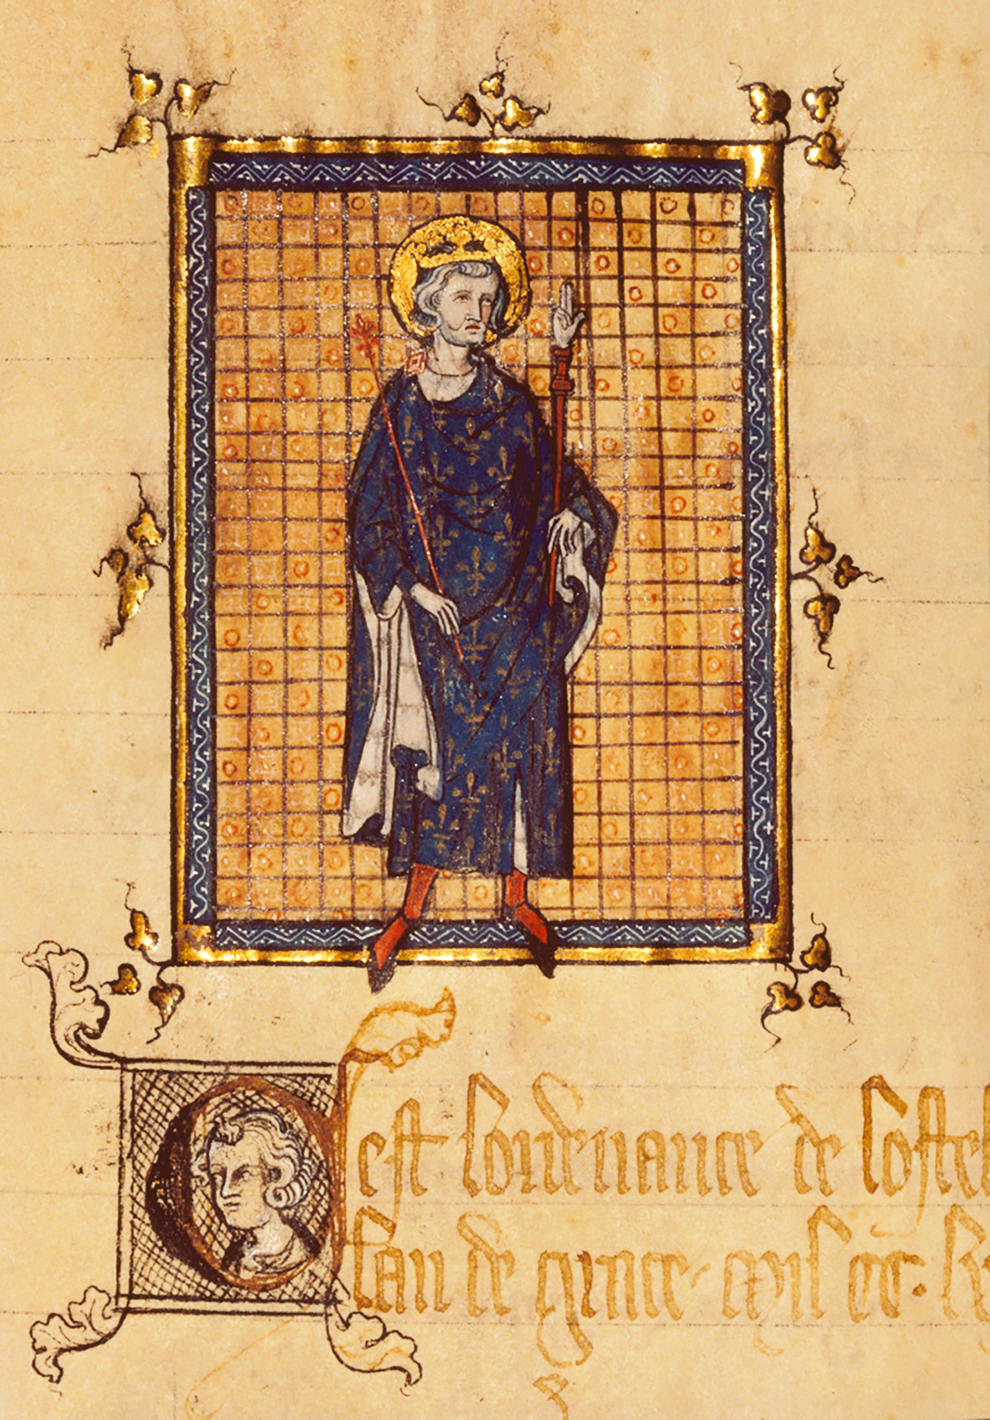 Cest lordenance de lostel
lan de grace mil cc.